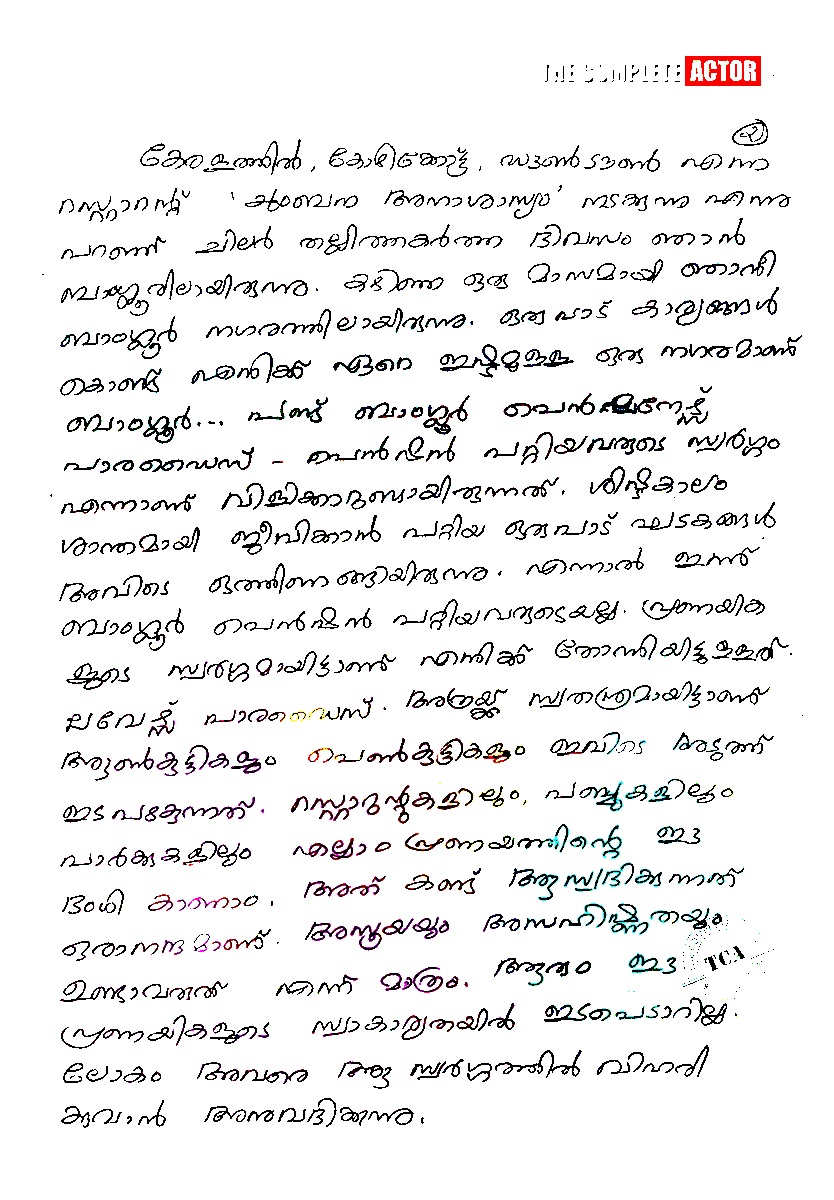 THE COMPLETE ACTOR
൨
കേരളത്തിൽ, കോഴിക്കോട്ട്, ഡൗൺടൗൺ എന്ന
റസ്റ്റാറന്റ് 'ചുംബന അനാശാസ്യം' നടക്കുന്നു എന്നു
പറഞ്ഞ് ചിലർ തല്ലിത്തകർത്ത ദിവസം ഞാൻ
ബാംഗ്ലൂരിലായിരുന്നു. കഴിഞ്ഞ ഒരു മാസമായി ഞാനീ
ബാംഗ്ലൂർ നഗരത്തിലായിരുന്നു. ഒരുപാട് കാര്യങ്ങൾ
കൊണ്ട് എനിക്ക് ഏറെ ഇഷ്ടമുള്ള ഒരു നഗരമാണ്
ബാംഗ്ലൂർ... പണ്ട് ബാംഗ്ലൂർ പെൻഷനേഴ്സ്
പാരഡൈസ് - പെൻഷൻ പറ്റിയവരുടെ സ്വർഗ്ഗം
എന്നാണ് വിളിക്കാറുണ്ടായിരുന്നത്. ശിഷ്ടകാലം
ശാന്തമായി ജീവിക്കാൻ പറ്റിയ ഒരുപാട് ഘടകങ്ങൾ
അവിടെ ഒത്തിണങ്ങിയിരുന്നു. എന്നാൽ ഇന്ന്
ബാംഗ്ലൂർ പെൻഷൻ പറ്റിയവരുടെയല്ല. പ്രണയിക
ളുടെ സ്വർഗ്ഗമായിട്ടാണ് എനിക്ക് തോന്നിയിട്ടുള്ളത്.
ലവേഴ്സ് പാരഡൈസ്. അത്രയ്ക്ക് സ്വതന്ത്രമായിട്ടാണ്
ആൺകുട്ടികളും പെൺകുട്ടികളും ഇവിടെ അടുത്ത്
ഇടപഴകുന്നത്. റസ്റ്റാറന്റുകളിലും, പബ്ബുകളിലും
പാർക്കുകളിലും എല്ലാം പ്രണയത്തിന്റെ ഈ
ഭംഗി കാണാം. അത് കണ്ട് ആസ്വദിക്കുന്നത്
ഒരാനന്ദമാണ്. അസൂയയും അസഹിഷ്ണുതയും
ഉണ്ടാവരുത് എന്ന് മാത്രം. ആരും ഈ
പ്രണയികളുടെ സ്വകാര്യതയിൽ ഇടപെടാറില്ല.
ലോകം അവരെ ആ സ്വർഗ്ഗത്തിൽ വിഹരി
ക്കുവാൻ അനുവദിക്കുന്നു.
TCA